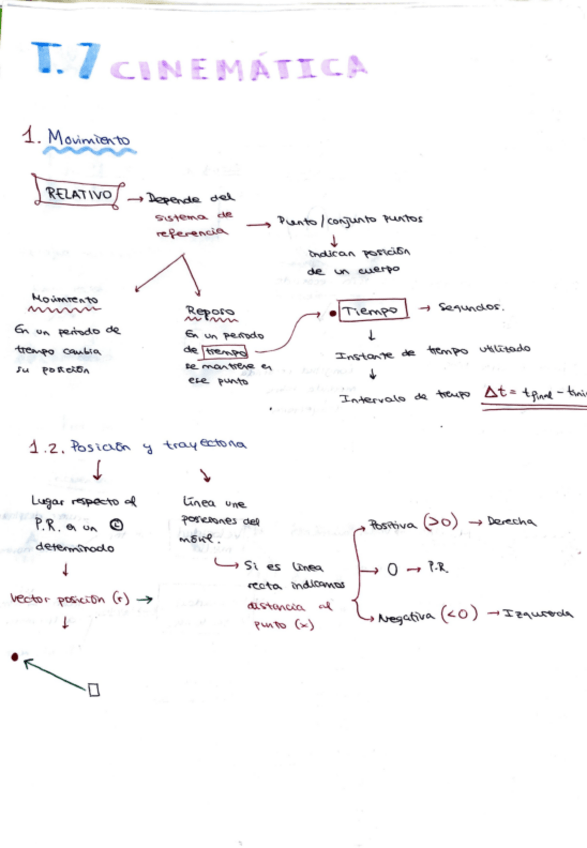 T.7 CINEMÁTICA
1. Movimiento
RELATIVO → Depende del
sistema de
referencia → Punto/conjunto puntos
↓
indican posición
de un cuerpo
Movimiento
En un periodo de
tiempo cambia
su posición
Reposo
En un periodo
de tiempo
se mantiene en
ese punto
• Tiempo → Segundos.
↓
Instante de tiempo utilizado
↓
Intervalo de tiempo Δt = tfinal -
1.2. Posición y trayectoria
Lugar respecto al
P.R. en un t
determinado
↓
vector posición (r) →
↓
Línea une
posiciones del
móvil.
↳ Si es línea
recta indicamos
distancia al
punto (x)
→ Positiva (>0) → Derecha
→ 0 → P.R.
↳ Negativa (<0) → Izquierda